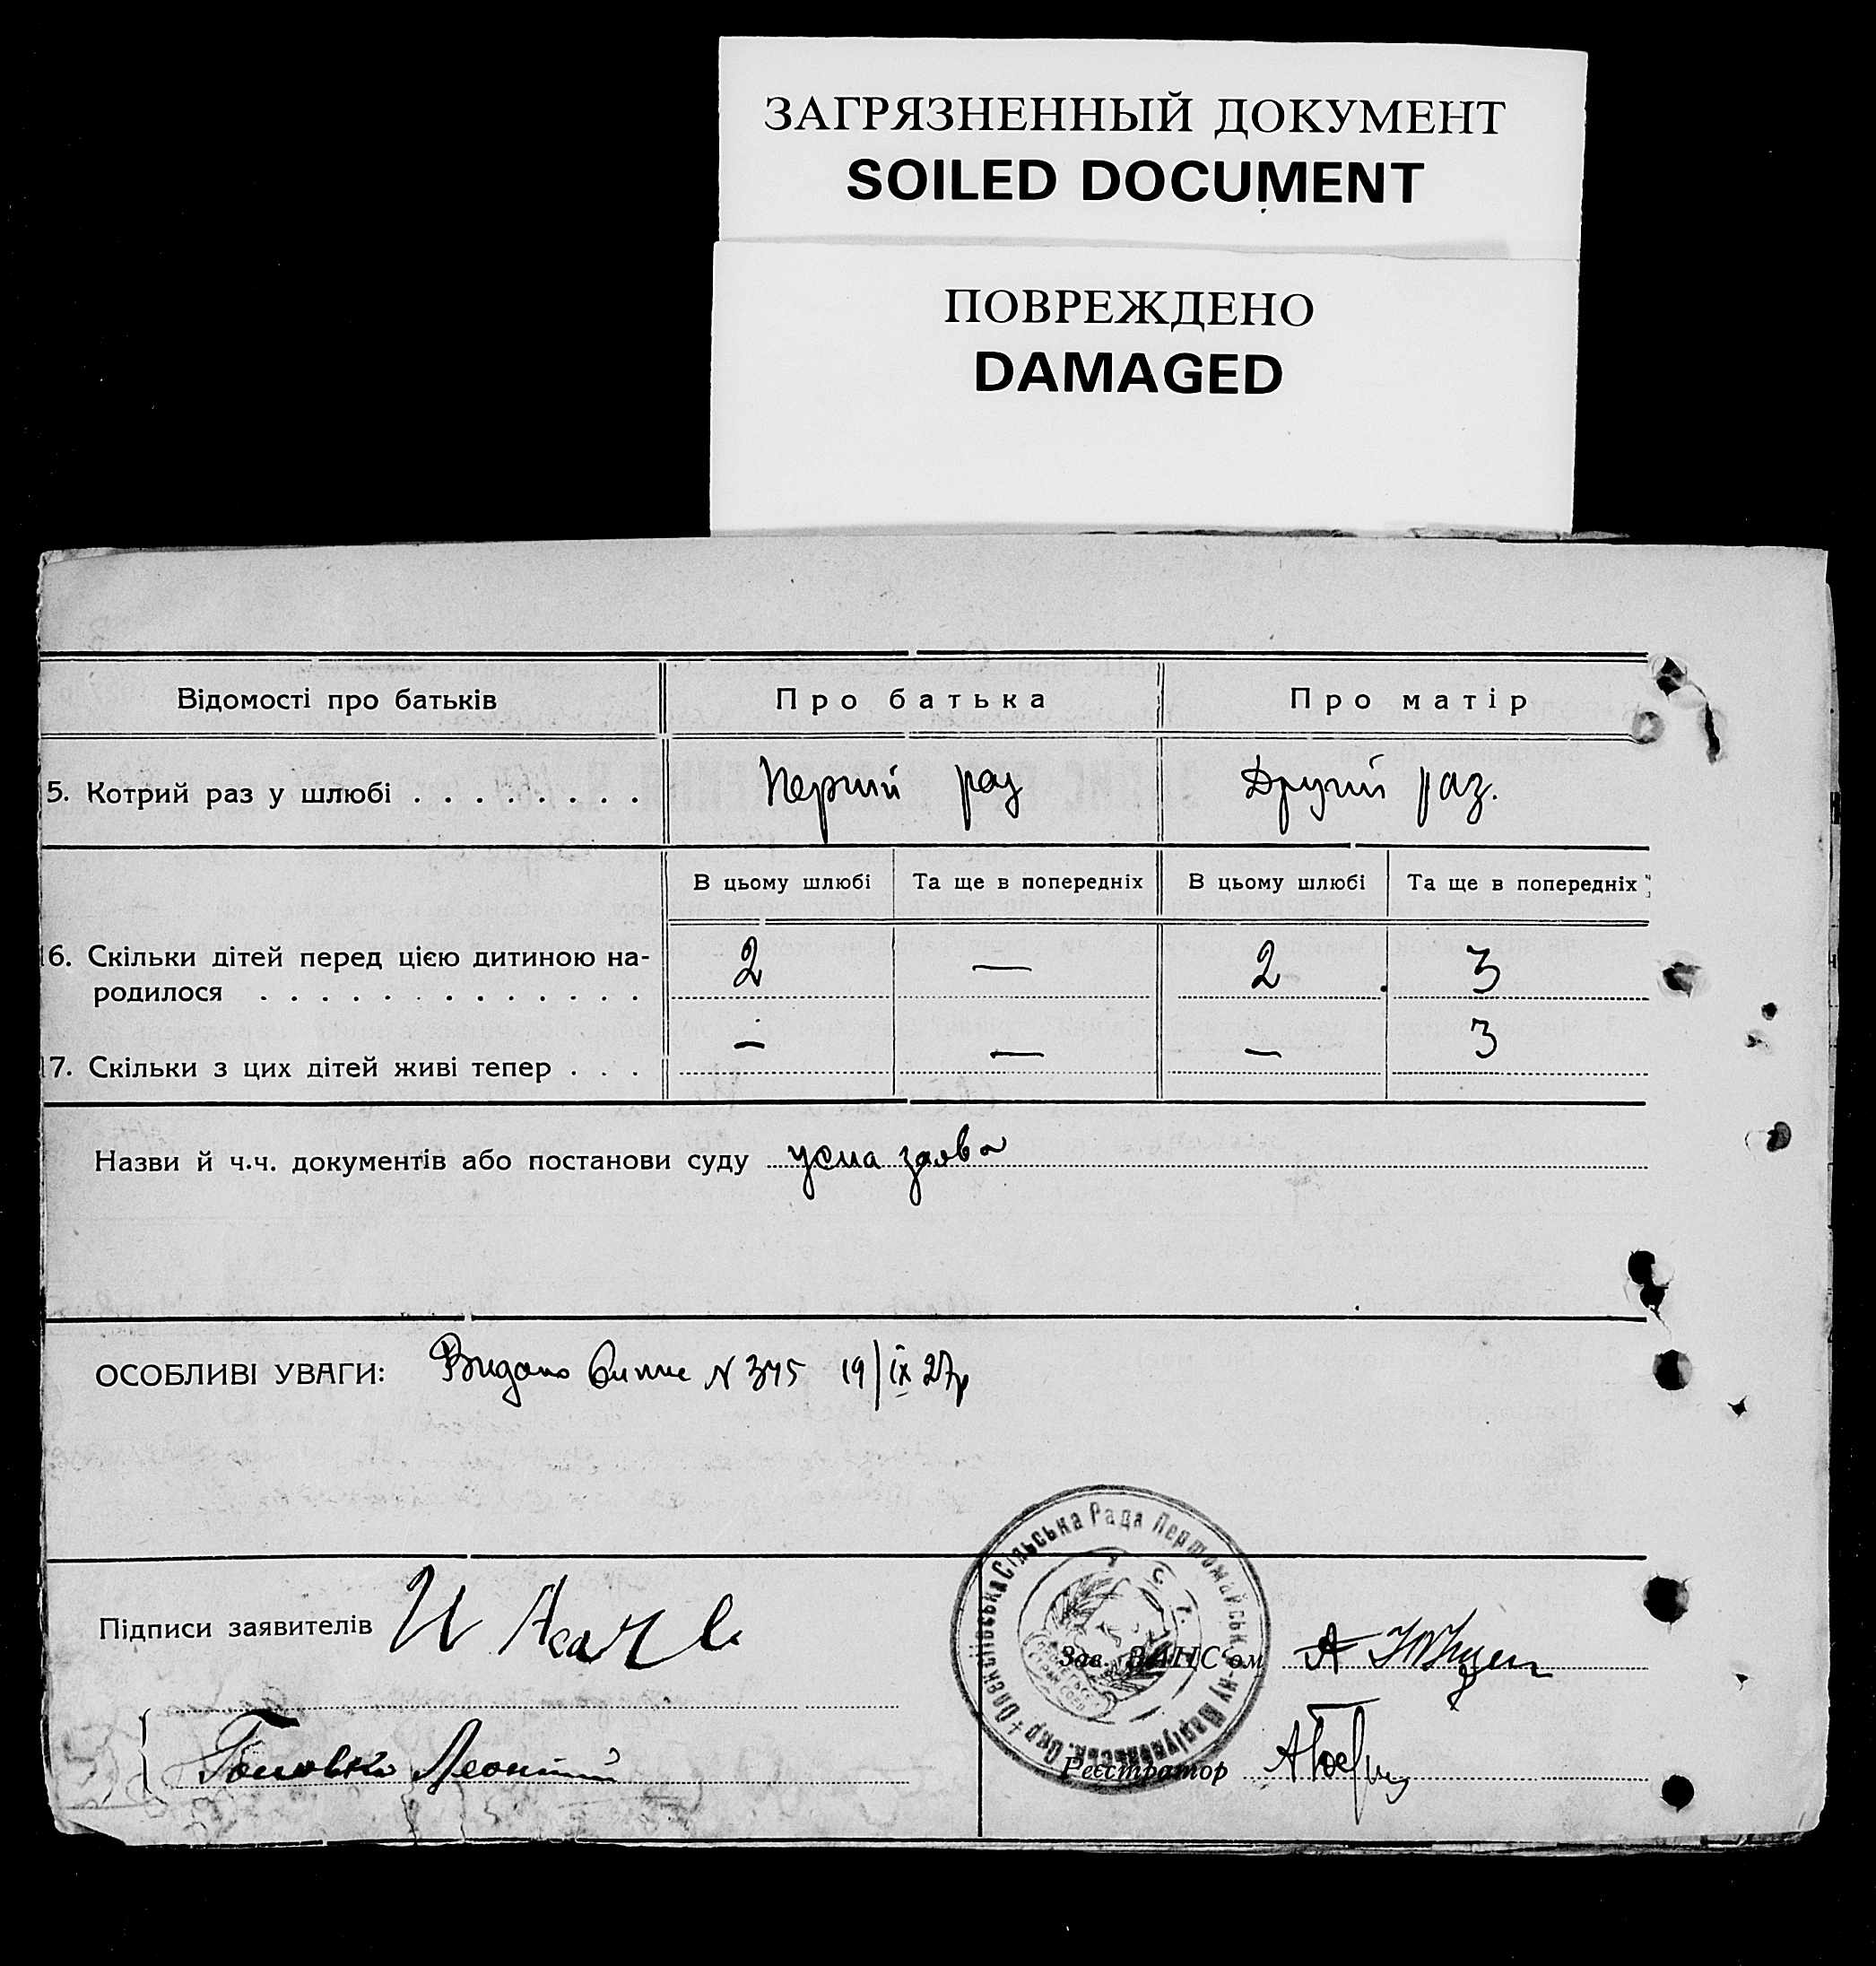 ЗАГРЯЗНЕННЫЙ ДОКУМЕНТ
SOILED DOCUMENT
ПОВРЕЖДЕНО
DAMAGED
Відомості про батьків Про батька Про матір
5. Котрий раз у шлюбі . . . . . . . . Перший раз Другий раз.
В цьому шлюбі Та ще в попередніх В цьому шлюбі Та ще в попередніх
6. Скільки дітей перед цією дитиною на-
родилося . . . . . . . . . . . . . 2 — 2 3
7. Скільки з цих дітей живі тепер . . . — — — 3
Назви й ч.ч. документів або постанови суду усна заява
ОСОБЛИВІ УВАГИ: Видано випис N 375 19/ІХ 27р
Підписи заявителів
Сільська Рада Першомайськ. р-ну Маріупольськ. Окр
Зав. ЗАГС'ом
Головко
Реєстратор